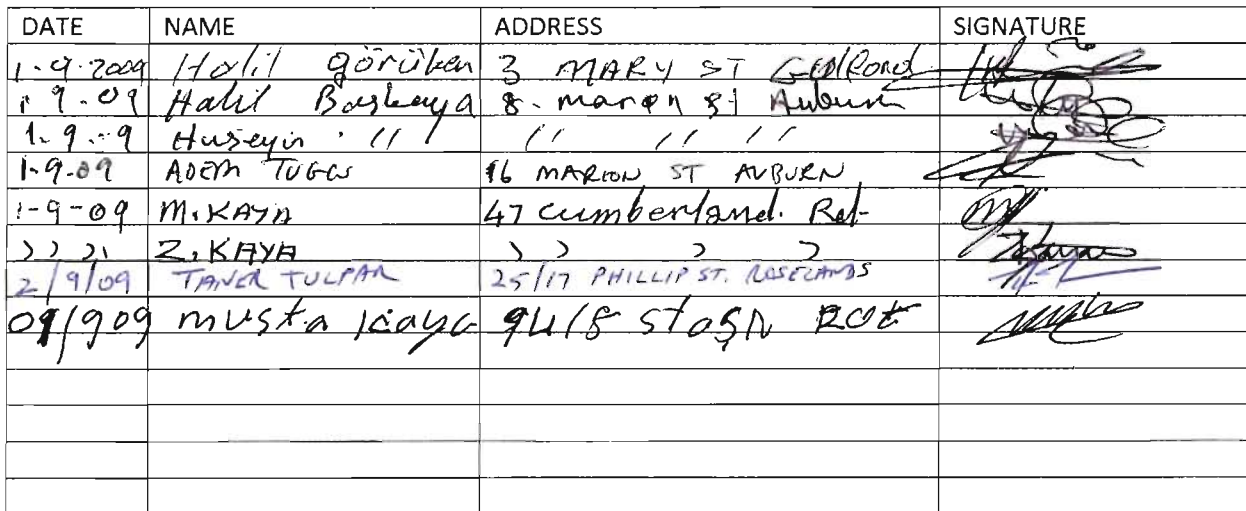 DATE NAME ADDRESS SIGNATURE
1-9-2009 Halil görüken 3 MARY ST
1 9-09 Halil Baskaya 8 - marion st Auburn
1-9-9 Huseyin " " " "
1-9-09 ADEM 16 MARION ST AUBURN
1-9-09 M. KAYA 47 Cumberland. Rd-
" " Z. KAYA " " " "
2/9/09 TANER TULPAR 25/17 PHILLIP ST. ROSELANDS
09/909 musta kaya